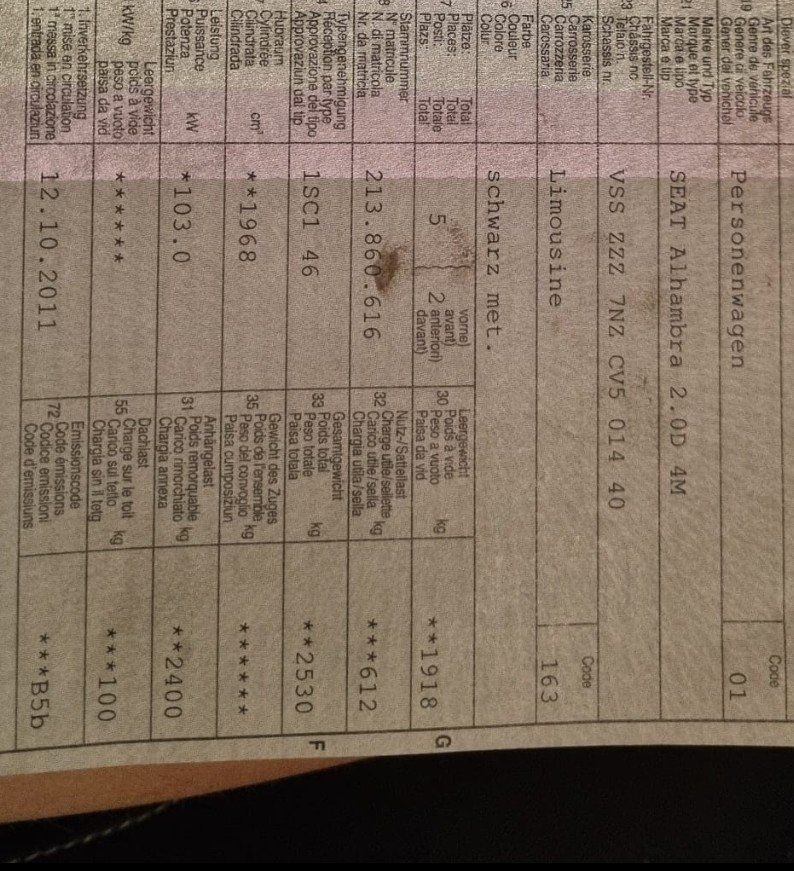 Diever spezial
Art des Fahrzeugs
Genre de véhicule
Genere di veicolo
Gener dal vehichel
Personenwagen
Code
01
Marke und Typ
Marque et type
Marca e tipo
Marca e tip
SEAT Alhambra 2.0D 4M
23
Fahrgestell-Nr.
Châssis no
Telaio n.
Schassis nr.
VSS ZZZ 7NZ CV5 014 40
25
Karosserie
Carrosserie
Carrozzeria
Carossaria
Limousine
Code
163
Farbe
Couleur
Colore
Colur
schwarz met.
Plätze: Total
Places: Total
Posti: Totale
Plazs: Total
5
vorne)
avant)
anteriori)
davant)
2
30
Leergewicht
Poids à vide
Peso a vuoto
Paisa da vid
kg
**1918
G
Stammnummer
N° matricule
N. di matricola
Nr. da matricla
213.860.616
32
Nutz-/Sattellast
Charge utile/sellette
Carico utile/sella
Chargia utila/sella
kg
***612
Typengenehmigung
Réception par type
Approvazione del tipo
Approvaziun dal tip
1SC1 46
33
Gesamtgewicht
Poids total
Peso totale
Paisa totala
kg
**2530
F
Hubraum
Cylindrée
Cilindrata
Cilindrada
cm³
**1968
35
Gewicht des Zuges
Poids de l'ensemble
Peso del convoglio
Paisa cumposiziun
kg
******
Leistung
Puissance
Potenza
Prestaziun
kW
*103.0
31
Anhängelast
Poids remorquable
Carico rimorchiato
Chargia annexa
kg
**2400
kW/kg
Leergewicht
poids à vide
peso a vuoto
paisa da vid
******
55
Dachlast
Charge sur le toit
Carico sul tetto
Chargia sin il tetg
kg
***100
1. Inverkehrsetzung
1re mise en circulation
1a messa in circolazione
1. entrada en circulaziun
12.10.2011
72
Emissionscode
Code émissions
Codice emissioni
Code d'emissiuns
***B5b